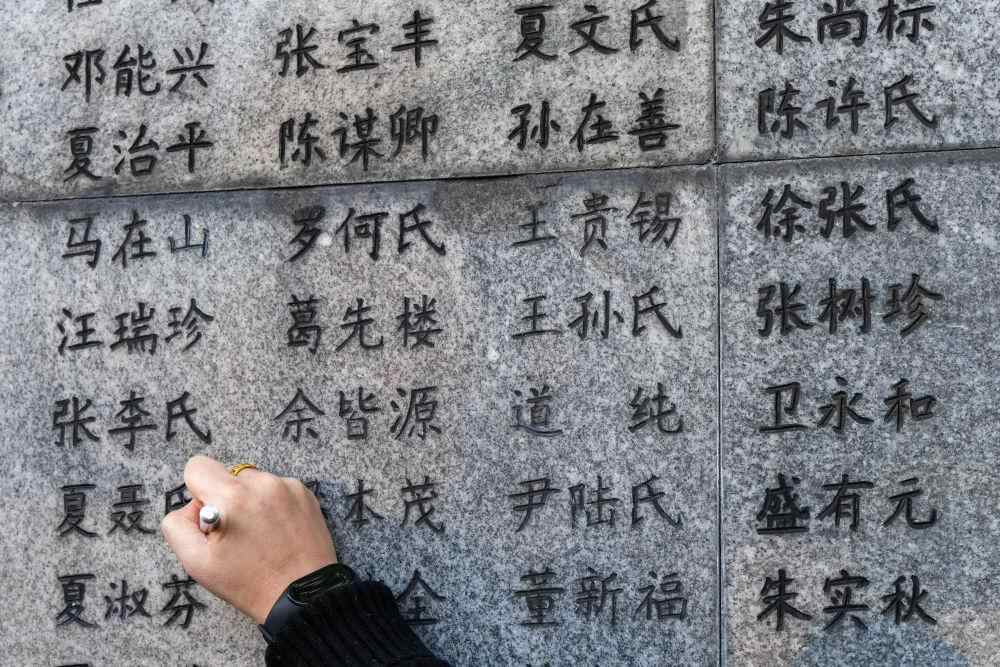 邓能兴 张宝丰 夏文氏 朱尚标
夏治平 陈谋卿 孙在善 陈许氏
马在山 罗何氏 王贵锡 徐张氏
汪瑞珍 葛先楼 王孙氏 张树珍
张李氏 余皆源 道纯 卫永和
夏聂氏 本茂 尹陆氏 盛有元
夏淑芬 全 董新福 朱实秋